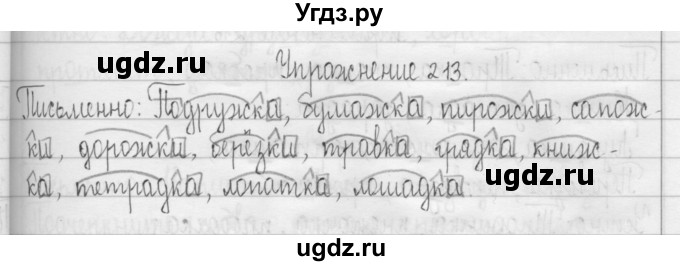 Угдз.ру
ugdz.ru
Упражнение 213.
Письменно: Подружка, бумажка, пирожки, сапож-
ки, дорожки, берёзки, травка, грядка, книж-
ugdz.ru
ка, тетрадка, лопатка, лошадка.
ugdz.ru